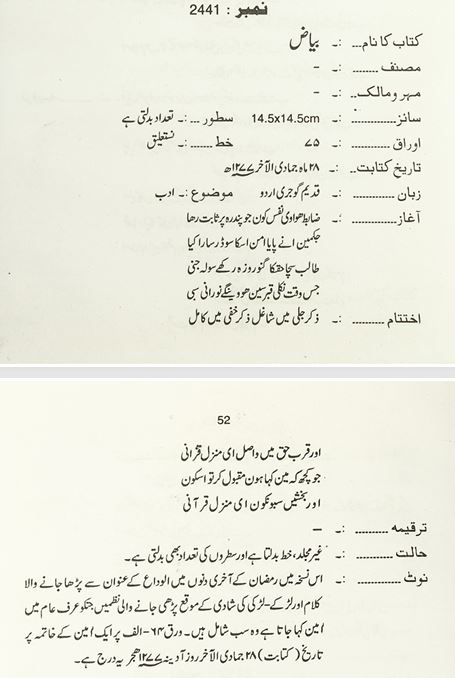 نمبر : 2441
کتاب کا نام... :۔ بیاض
مصنف ........ :۔ -
مہر و مالک.. :۔ -
سائز............ :۔ 14.5x14.5cm سطور ... :۔ تعداد بدلتی ہے
اوراق ........... :۔ ۷۵ خط ....... :۔ نستعلیق
تاریخ کتابت.. :۔ ۲۸ ماہ جمادی الآخر ۱۲۷۷ھ
زبان ............ :۔ قدیم گوجری اردو موضوع :۔ ادب
آغاز............. :۔ ضابط ھوا وی نفس کون جو پندرہ پر ثابت رھا
جگمین انے پایا امن اسکا سو ڈر سارا کیا
طالب سچا حقکا گنو روزہ رکھے سولہ جنی
جس وقت نکلی قبر سین ھووینگے نورانی سبی
اختتام .......... :۔ ذکر جلی میں شاغل ذکر خفی میں کامل
52
اور قرب حق میں واصل ای منزل قرآنی
جو کچھ کہ مین کہا ہون مقبول کر تو اسکون
اور بخشیں سبونکون ای منزل قرآنی
ترقیمہ .......... :۔ —
حالت ........... :۔ غیر مجلد، خط بدلتا ہے اور سطروں کی تعداد بھی بدلتی ہے۔
نوٹ ............. :۔ اس نسخہ میں رمضان کے آخری دنوں میں الوداع کے عنوان سے پڑھا جانے والا
کلام اور لڑکے-لڑکی کی شادی کے موقع پڑھی جانے والی نظمیں جنکو عرف عام میں
امین کہا جاتا ہے وہ سب شامل ہیں۔ ورق ۶۴-الف پر ایک امین کے خاتمہ پر
تاریخ (کتابت) ۲۸ جمادی الآخر روز آدینہ ۱۲۷۷ ھجر یہ درج ہے۔